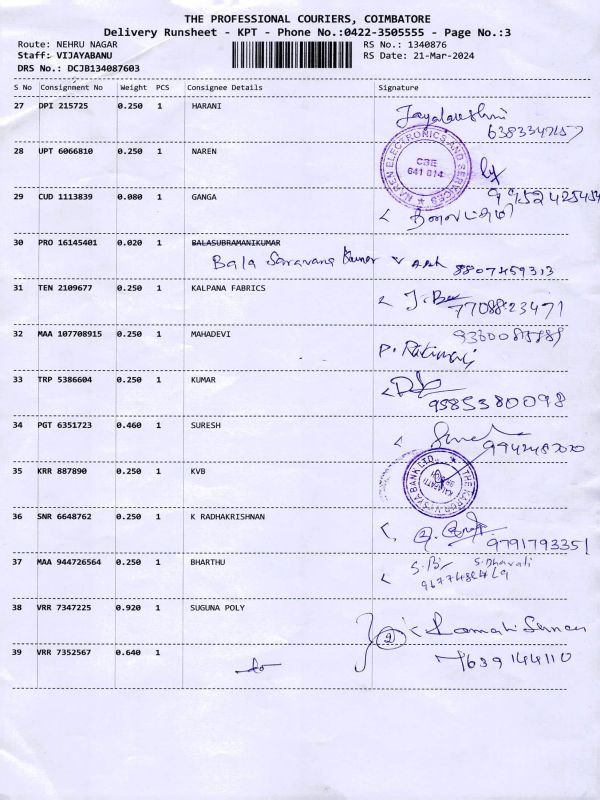 THE PROFESSIONAL COURIERS, COIMBATORE
Delivery Runsheet - KPT - Phone No.:0422-3505555 - Page No.:3
Route: NEHRU NAGAR RS No.: 1340876
Staff: VIJAYABANU RS Date: 21-Mar-2024
DRS No.: DCJB134087603
S No Consignment No Weight PCS Consignee Details Signature
27 DPI 215725 0.250 1 HARANI
28 UPT 6066810 0.250 1 NAREN
NAREN ELECTRONICS AND SERVICES
CBE
641 014
29 CUD 1113839 0.080 1 GANGA
30 PRO 16145401 0.020 1 BALASUBRAMANIKUMAR
Bala Saravana Kumar 8807459313
31 TEN 2109677 0.250 1 KALPANA FABRICS
7708823471
32 MAA 107708915 0.250 1 MAHADEVI
33 TRP 5386604 0.250 1 KUMAR
9585380098
34 PGT 6351723 0.460 1 SURESH
35 KRR 887890 0.250 1 KVB
THE KARUR VYSYA BANK LTD.
36 SNR 6648762 0.250 1 K RADHAKRISHNAN
9791793351
37 MAA 944726564 0.250 1 BHARTHU
38 VRR 7347225 0.920 1 SUGUNA POLY
2
39 VRR 7352567 0.640 1
7639144110